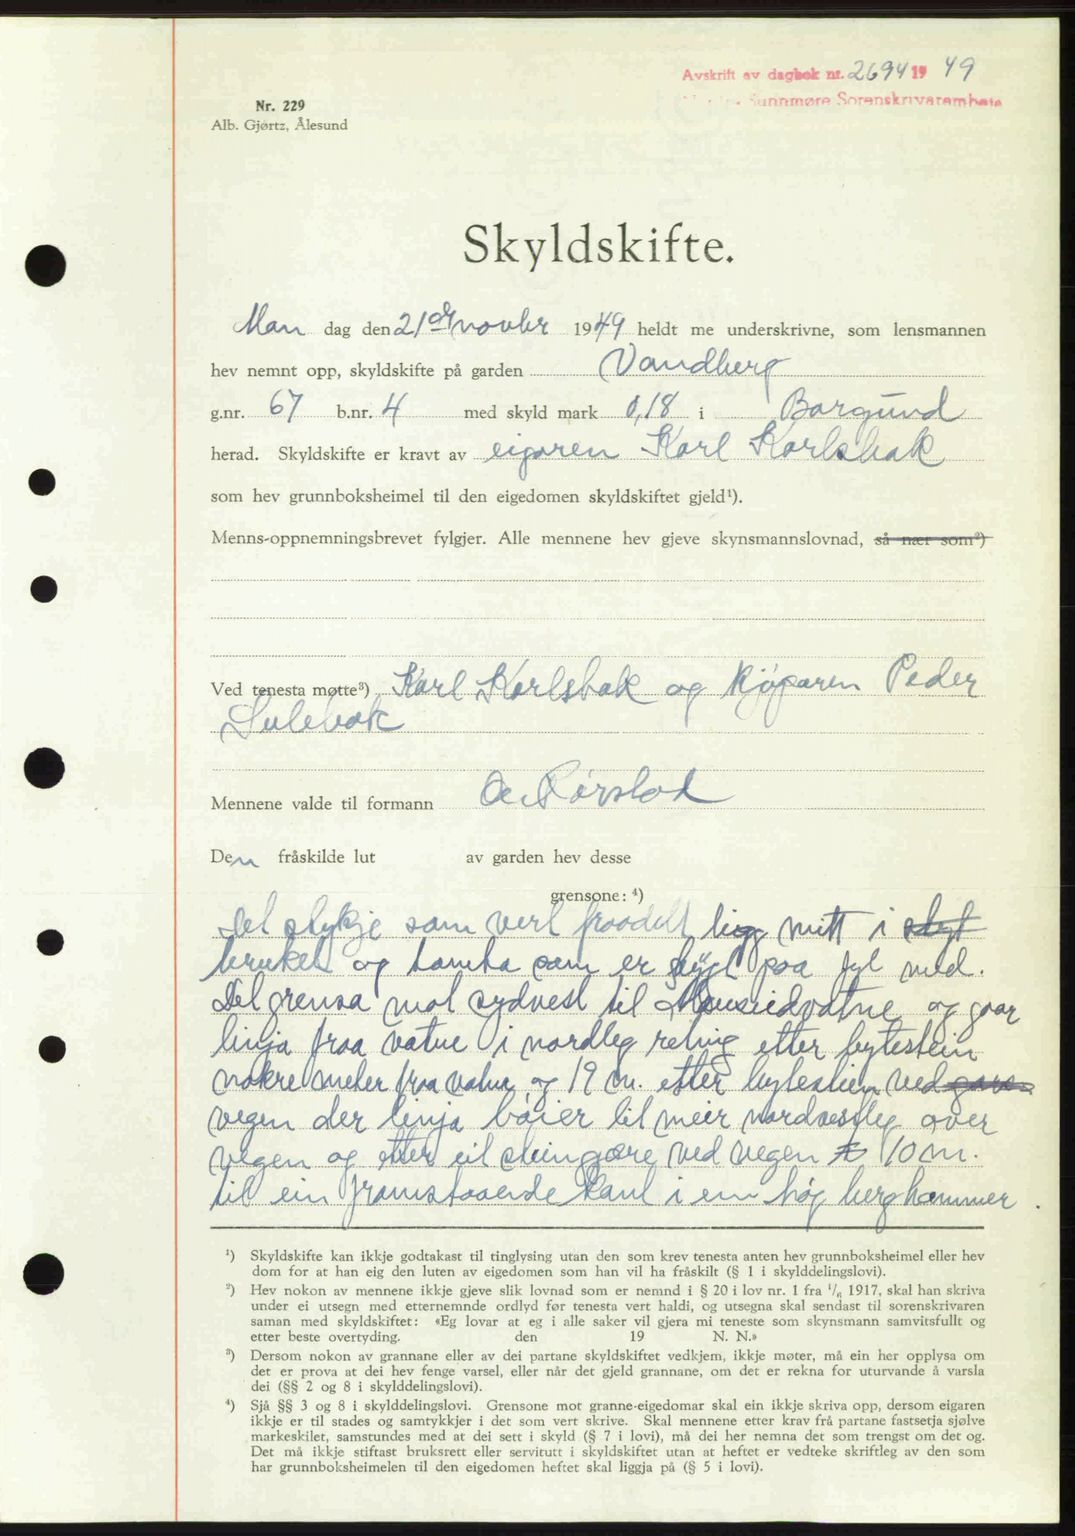 Avskrift av dagbok nr. 2694 19 49
Sunnmøre Sorenskrivarembete
Nr. 229
Alb. Gjørtz, Ålesund
Skyldskifte.
Man dag den 21de novbr 1949 heldt me underskrivne, som lensmannen
hev nemnt opp, skyldskifte på garden Vandberg
g.nr. 67 b.nr. 4 med skyld mark 0,18 i Borgund
herad. Skyldskifte er kravt av eigaren Karl Karlsbak
som hev grunnboksheimel til den eigedomen skyldskiftet gjeld¹).
Menns-oppnemningsbrevet fylgjer. Alle mennene hev gjeve skynsmannslovnad, så nær som²)
Ved tenesta møtte³) Karl Karlsbak og kjøparen Peder
Sulebak
Mennene valde til formann
Den fråskilde lut av garden hev desse
grensone: ⁴)
Det stykje som vert fraadelt ligg mitt i
bruket og tomta som er bygt paa fyl med.
Det grensa mot sydvest til vatne og gaar
linja fraa vatne i nordleg retning etter bytestein
nokre meter fraa vatne og 19 m. etter bytestien ved
vegen der linja bøier til meir nordvestleg over
vegen og etter eit steingjære ved vegen 10 m.
til ein framstaaende kant i em høg berghammer.
¹) Skyldskifte kan ikkje godtakast til tinglysing utan den som krev tenesta anten hev grunnboksheimel eller hev
dom for at han eig den luten av eigedomen som han vil ha fråskilt (§ 1 i skylddelingslovi).
²) Hev nokon av mennene ikkje gjeve slik lovnad som er nemnd i § 20 i lov nr. 1 fra ¹/₆ 1917, skal han skriva
under ei utsegn med etternemnde ordlyd før tenesta vert haldi, og utsegna skal sendast til sorenskrivaren
saman med skyldskiftet: «Eg lovar at eg i alle saker vil gjera mi teneste som skynsmann samvitsfullt og
etter beste overtyding. den 19 N. N.»
³) Dersom nokon av grannane eller av dei partane skyldskiftet vedkjem, ikkje møter, må ein her opplysa om
det er prova at dei hev fenge varsel, eller når det gjeld grannane, om det er rekna for uturvande å varsla
dei (§§ 2 og 8 i skylddelingslovi).
⁴) Sjå §§ 3 og 8 i skylddelingslovi. Grensone mot granne-eigedomar skal ein ikkje skriva opp, dersom eigaren
ikkje er til stades og samtykkjer i det som vert skrive. Skal mennene etter krav frå partane fastsetja sjølve
markeskilet, samstundes med at dei sett i skyld (§ 7 i lovi), må dei her nemna det som trengst om det og.
Det må ikkje stiftast bruksrett eller servitutt i skyldskiftet utan at heftet er vedteke skriftleg av den som
har grunnboksheimelen til den eigedomen heftet skal liggja på (§ 5 i lovi).